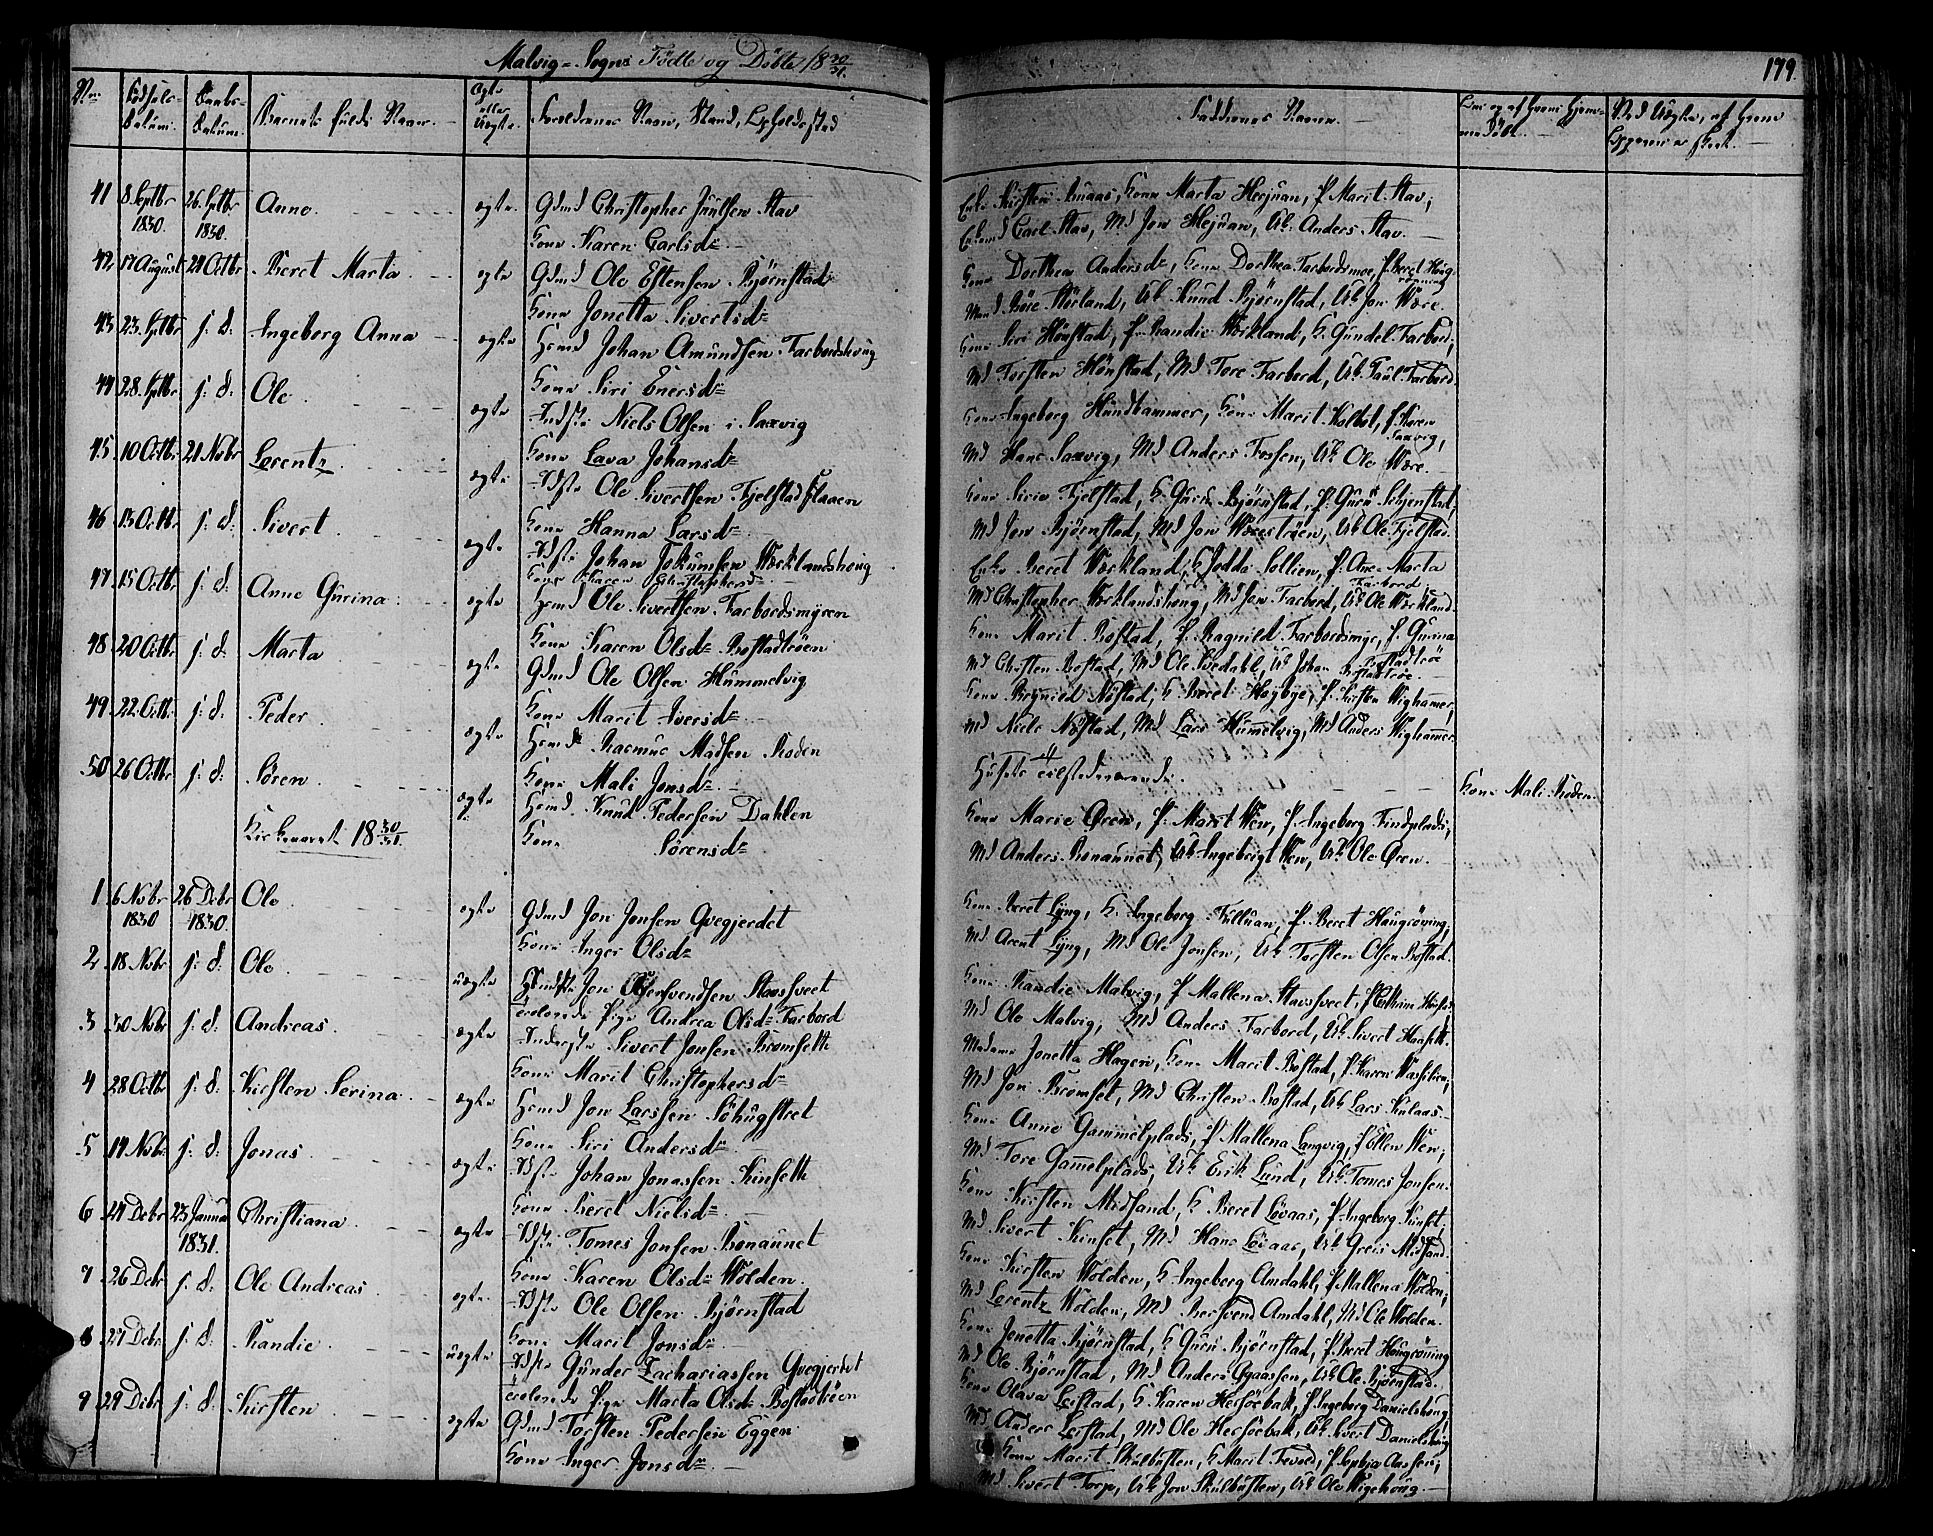 Malvig-Sogns Fødte og Døbte 18 30/31.
179.
No.
Fødsels-Datum.
Daabs-Datum.
Barnets fulde Navn.
Ægte eller Uægte.
Forældrenes Navn, Stand, Opholdssted
Faddernes Navne.
41 8 Septbr 1830. 26. Sptbr 1830. Anne. ægte. Gdmd Christopher Juulsen Stav
Kone Karen Carlsdr
Marta Hersjuan, P. Marit Stav;
Carl Stav, Md Jon Hersjuan, Uk. Anders Stav.
42 17 August 24 Octbr Beret Marta ægte Gdmd Ole Estensen Bjørnstad
Kone Jonetta Sivertsdr
Kone Dorthea Andersdr, Kone Dorthea Farbordsmoe, P. Beret Houg-
Uk. Knud Bjørnstad, Uk. Jon Være.
43 23. Sptbr s: d: Ingeborg Anna ægte Hmd Johan Amundsen Farbordshoug
Kone Siri Enersdr
Kone Siri Hønstad, P. Randie Værkland, K. Gundel Farbord;
Md Torsten Hønstad, Md Tore Farbord, Uk. Paul Farbord.
44 28. Sptbr s: d: Ole. ægte Indste Niels Olsen i Saxvig
Kone Lava Johansdr
Kone Ingeborg Hundhammer, Kone Marit Kolbot, P. Karen Saxvig,
Md Hans Saxvig, Md Anders Fossen, Uk. Ole Være.
45. 10 Octbr 21 Novbr Lorentz ægte Idste Ole Sivertsen Fjelstad
Kone Hanna Larsdr
Kone Siria Fjelstad, K. Guru Bjørnstad, P. Guru
Md Jon Bjørnstad, Md Jon Værestrøen, Uk. Ole Fjelstad.
46 13 Octbr s: d: Sivert. ægte Idste Johan Jokumsen Værklandshoug
Kone Karen Christophersdr
Enke Beret Værkland, K. Jodda Sollien, P. Ane Marta Farbord;
Md Christopher Værklandshoug, Md Jon Farbord, Uk. Ole Værkland.
47 15 Octbr s: d: Anne Gurina. ægte Hmd Ole Sivertsen Farbordsmyren
Kone Karen Olsdr Bostadtrøen
Kone Marit Bostad, P. Ragnild Farbordsmyr, P. Gurina Bostadtrøe
Md Christen Bostad, Md Ole Svedahl, Uk. Johan Bostadtrøe.
48 20 Octbr s: d: Marta ægte Gdmd Ole Olsen Hummelvig
Kone Marit Iversdr
Kone Brynild Nøstad, K. Beret Høybye, P. Kirsten Wighamer,
Md Niels Nøstad, Md Lars Hummelvig, Md Anders Wighammer
49. 22. Octb. s: d: Peder ægte Hmd Rasmus Madsen Roden
Kone Mali Jonsdr
Husets 4 tilstedeværende.
Kone Mali Roden.
50 26 Octbr s: d: Søren. ægte Hmd. Knud Pedersen Dahlen
Kone Sørensdr
Kone Marie Øren, P. Marit Wen, P. Ingeborg Findplads;
Md Anders Bonaunet, Uk. Ingebrigt Wen, Uk. Ole Øren.
Kirkeaaret 18 30/31.
1. 6 Nobr 1830 26 Debr 1830. Ole ægte Gdmd Jon Jonsen Qvegjerdet
Kone Inger Olsdr
Kone Beret Lyng, K. Ingeborg Tulluan, P. Beret Hougrøning,
Md Arent Lyng, Md Ole Jonsen, Uk. Torsten Olsen Bostad.
2. 18 Nobr s: d: Ole uægte Jon Stavssveet
Pige Andrea Olsdr Farbord
Kone Randie Malvig, P. Mallena Stavssveet,
Md Ole Malvig, Md Anders Farbord, Uk. Sivert
3 30 Nobr s: d: Andreas. ægte Inderste Sivert Jonsen Bromseth
Kone Marit Christophersdr
Madame Jonetta Hagen, Kone Marit Bostad, P. Karen
Md Jon Bromset, Md Christen Bostad, Uk. Lars
4 28 Octb. s: d: Kirsten Serina ægte Hmd Jon Larssen
Kone Siri Andersdr
Kone Anne Gammelplads, P. Mallena Langvig, P. Ellen Wen;
Md Tore Gammelplads, Uk. Erik Lund, Uk. Tomes Jonsen.
5 14 Nobr s: d: Jonas ægte Idste Johan Jonassen Kinseth
Kone Beret Nielsdr
Kone Kirsten Midsand, K. Beret Løvaas, P. Ingeborg Kinset;
Md Sivert Kinset, Md Hans Løvaas, Uk. Greis Midsand.
6 24 Debr 23 Janua 1831. Christiana ægte Idste Tomes Jonsen Bonaunet
Kone Karen Olsdr Wolden.
Kone Kirsten Wolden, K. Ingeborg Amdahl, P. Mallena Wolden;
Md Lorentz Wolden, Md Bersvend Amdahl, Md Ole Wolden.
7 26 Debr s: d: Ole Andreas ægte. Idste Ole Olsen Bjørnstad
Kone Marit Jonsdr
Kone Jonetta Bjørnstad, K. Guru Bjørnstad, P. Beret Hougrønning
Md Ole Bjørnstad, Md Anders Uk. Ole Bjørnstad.
8 27 Debr s: d: Randie. uægte Idste Gunder Zachariassen Qvegjerdet
Pige Marta Olsdr Bostadtrøen
Kone Olava Leistad, K. Karen Hersøebak, P. Ingeborg Danielshoug,
Md Anders Leistad, Md Ole Hersøebak, Uk. Sivert Danielshoug
9 29 Debr s: d: Kirsten ægte Gdmd Torsten Pedersen Eggen
Kone Inger Jonsdr
Kone Marit Skulbusten, K. Marit P. Sophia Aassen;
Md Sivert Torp, Uk. Jon Skulbusten, Uk. Ole Wigehoug.